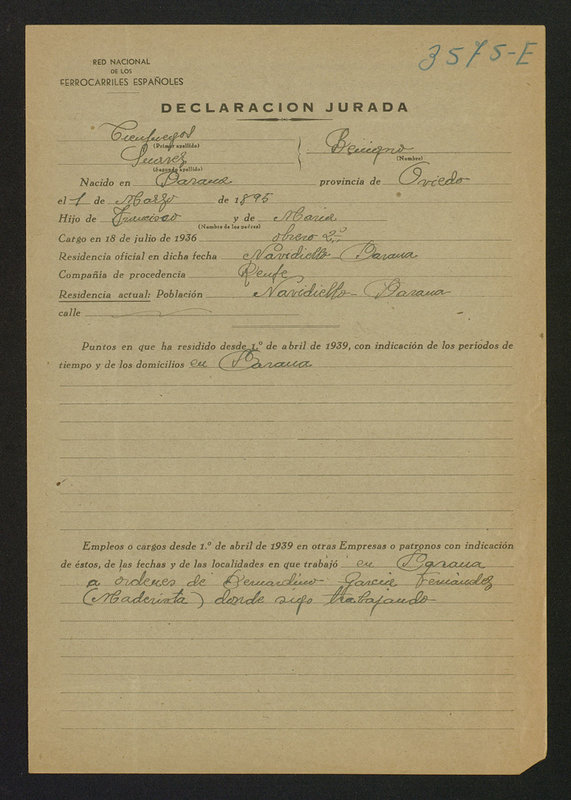 3575-E
RED NACIONAL
DE LOS
FERROCARRILES ESPAÑOLES
DECLARACION JURADA
Cienfuegos
(Primer apellido)
Suarez
(Segundo apellido)
Benigno
(Nombre)
Nacido en Parana provincia de Oviedo
el 1 de Marzo de 1895
Hijo de Francisco y de Maria
(Nombre de los padres)
Cargo en 18 de julio de 1936 obrero 2º
Residencia oficial en dicha fecha Navidiello Parana
Compañía de procedencia Renfe
Residencia actual: Población Navidiello - Parana
calle
Puntos en que ha residido desde 1.º de abril de 1939, con indicación de los períodos de
tiempo y de los domicilios en Parana
Empleos o cargos desde 1.º de abril de 1939 en otras Empresas o patronos con indicación
de éstos, de las fechas y de las localidades en que trabajó en Parana
a ordenes de Bernardino Garcia Fernandez
(Maderista) donde sigo trabajando